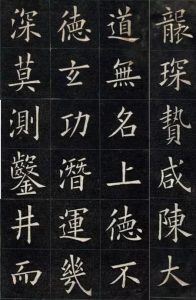 龈琛贄咸陳大
道無名上德不
德玄功潛運幾
深莫測鑿井而